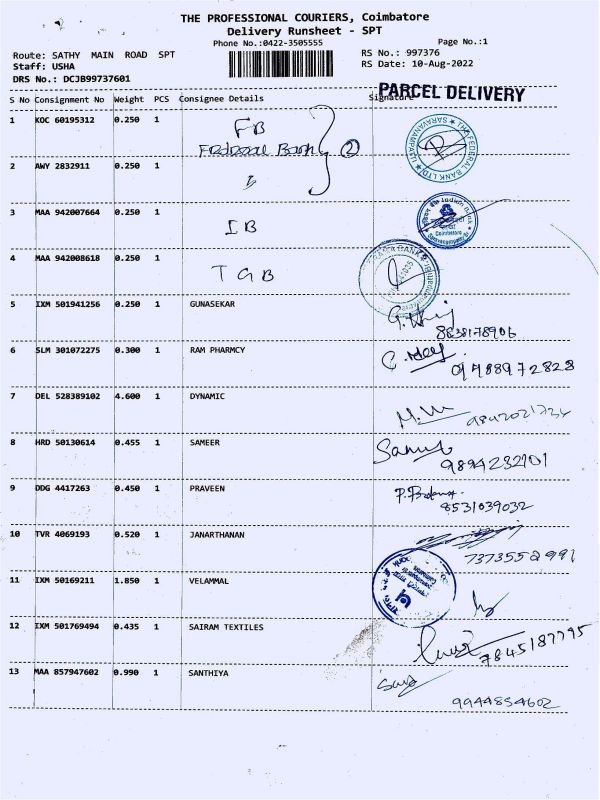 THE PROFESSIONAL COURIERS, Coimbatore
Delivery Runsheet - SPT
Phone No.:0422-3505555
Page No.:1
Route: SATHY MAIN ROAD SPT
RS No.: 997376
Staff: USHA
RS Date: 10-Aug-2022
DRS No.: DCJB99737601
PARCEL DELIVERY
S No Consignment No Weight PCS Consignee Details Signature
1 KOC 60195312 0.250 1 FB
Federal Bank 2
2 AWY 2832911 0.250 1
3 MAA 942007664 0.250 1 IB
4 MAA 942008618 0.250 1 TGB
5 IXM 501941256 0.250 1 GUNASEKAR
8838178906
6 SLM 301072275 0.300 1 RAM PHARMCY
09488972828
7 DEL 528389102 4.600 1 DYNAMIC
8 HRD 50130614 0.455 1 SAMEER
9894232101
9 DDG 4417263 0.450 1 PRAVEEN
8531039032
10 TVR 4069193 0.520 1 JANARTHANAN
7373552991
11 IXM 50169211 1.850 1 VELAMMAL
12 IXM 501769494 0.435 1 SAIRAM TEXTILES
7845187795
13 MAA 857947602 0.990 1 SANTHIYA
9944854602
THE FEDERAL BANK LTD
SARAVANAMPATTI
Indian Bank
Coimbatore